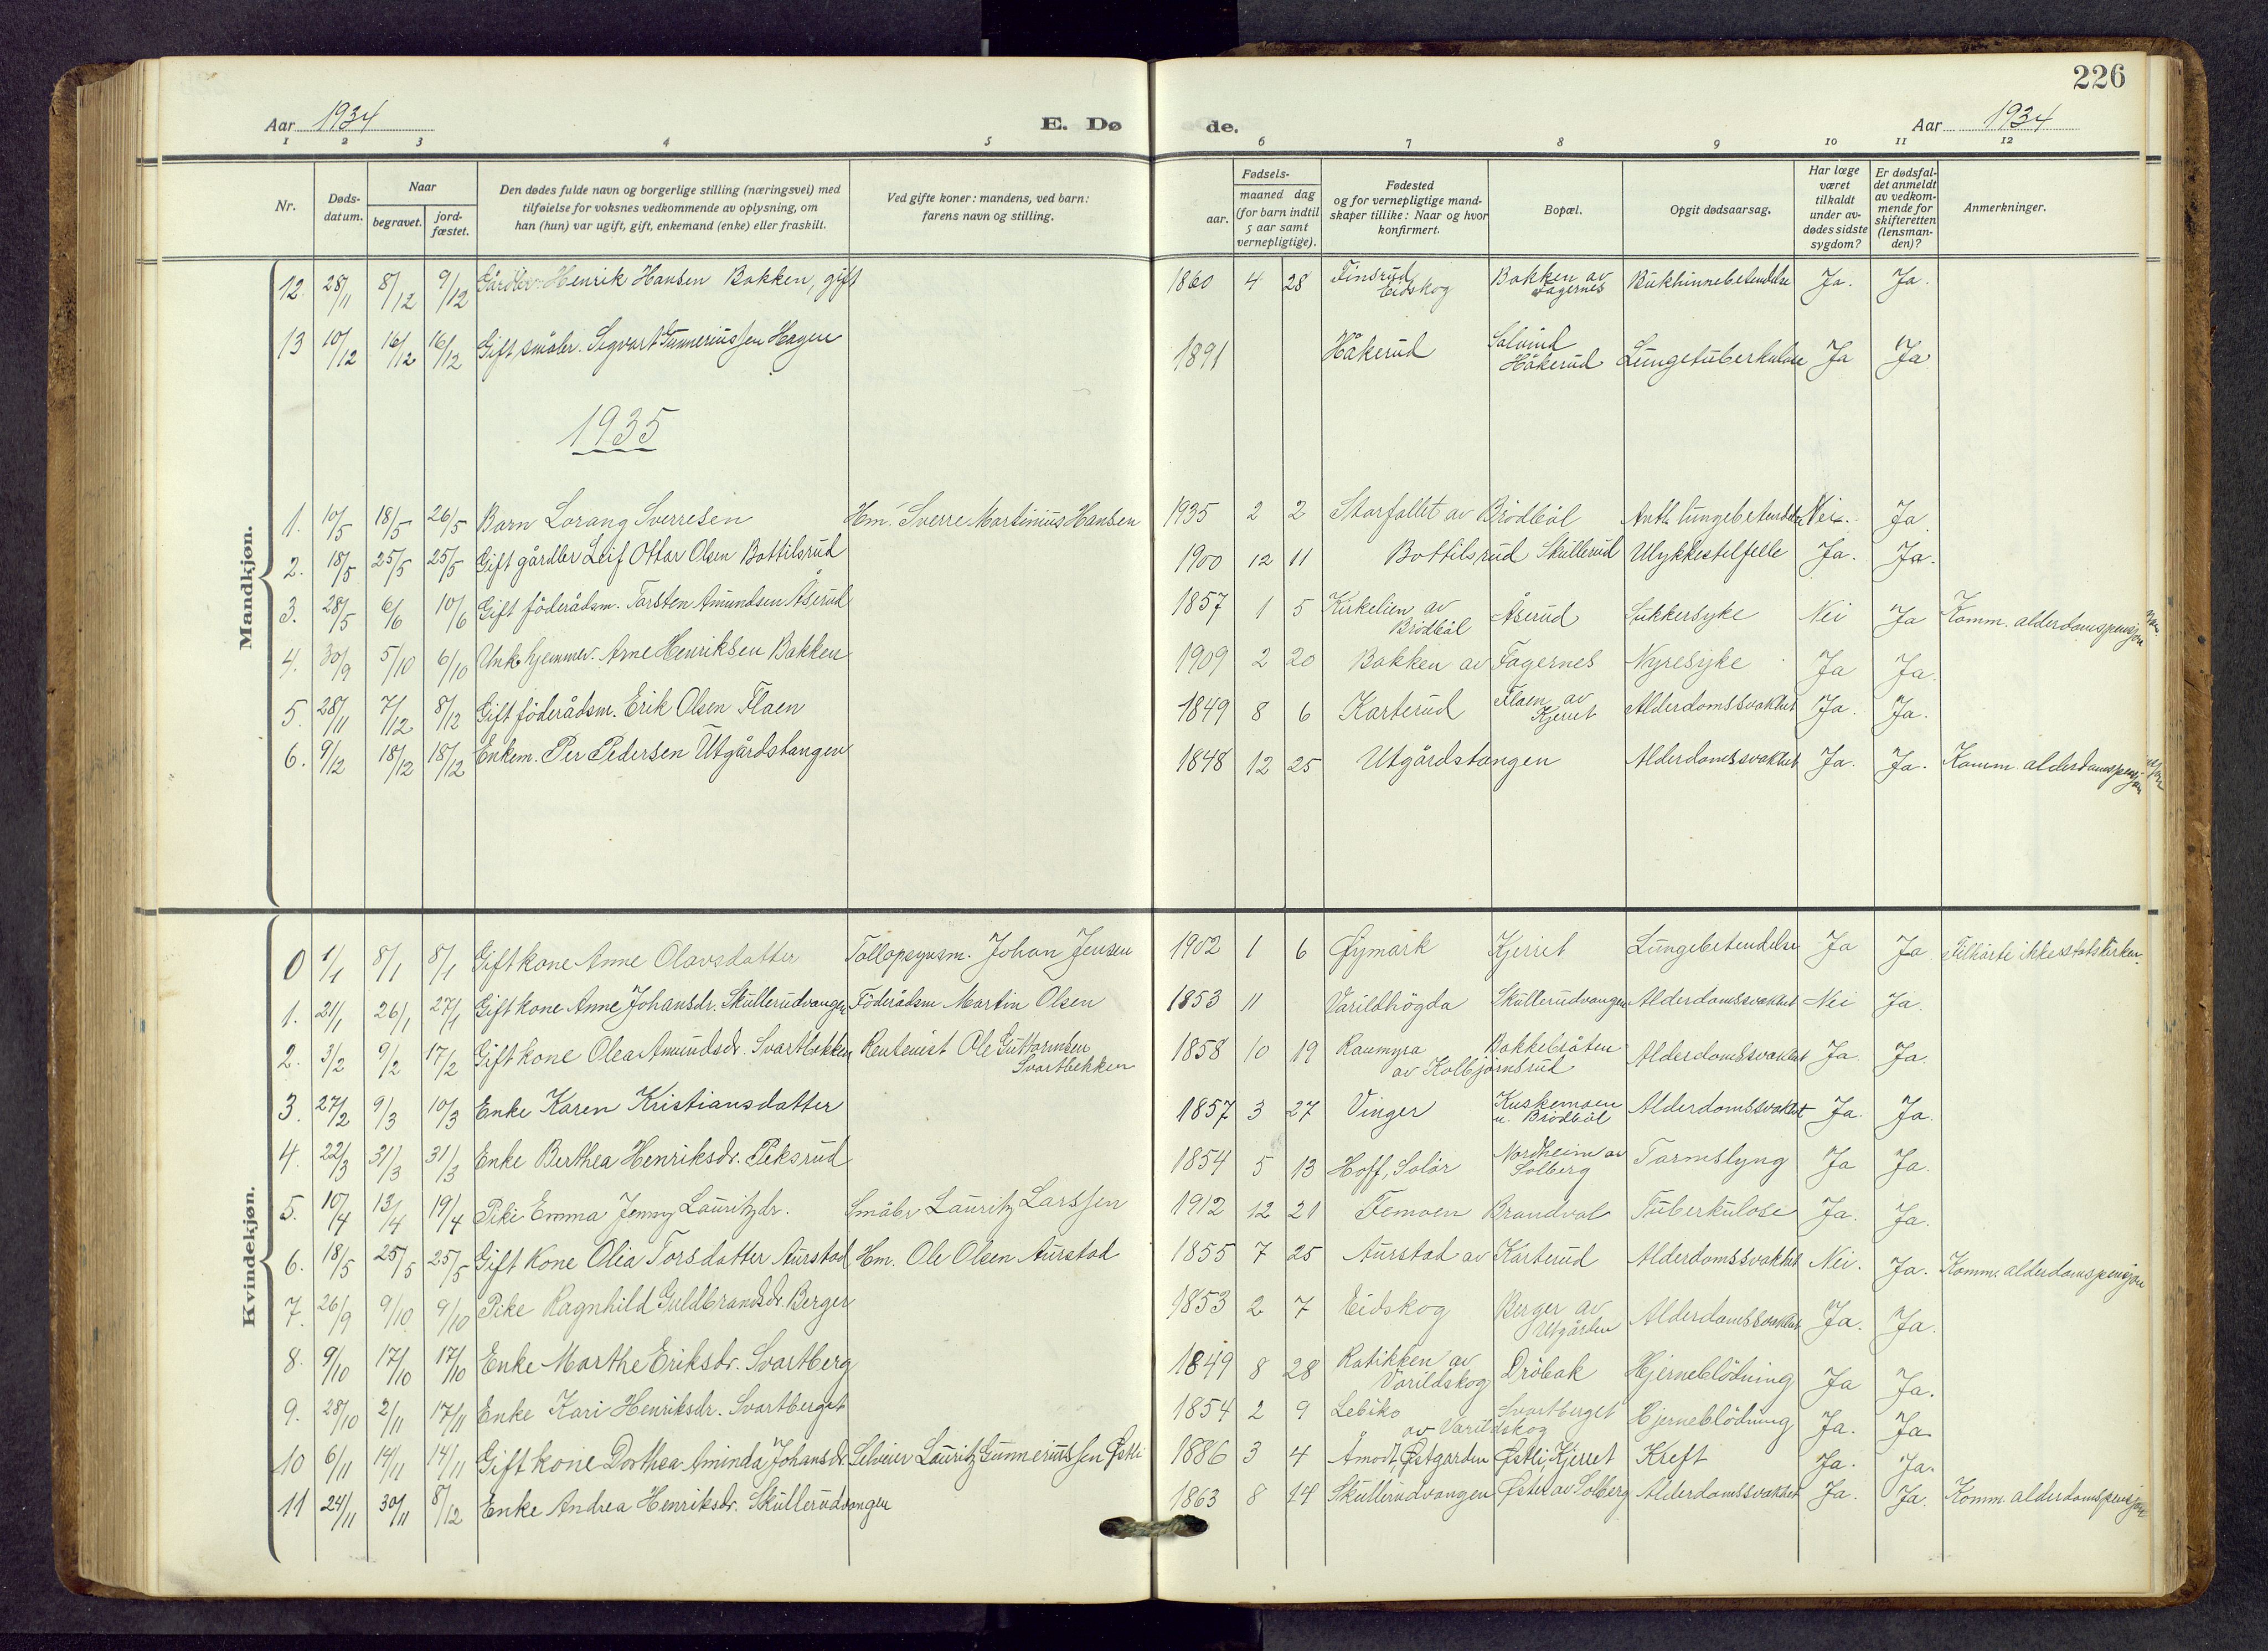 226
Aar 1934
E. Dø
de.
Aar 1934
1 2 3 4 5 6 7 8 9 10 11 12
Nr.
Døds-
datum.
Naar
begravet.
jord-
fæstet.
Den dødes fulde navn og borgerlige stilling (næringsvei) med
tilføielse for voksnes vedkommende av oplysning, om
han (hun) var ugift, gift, enkemand (enke) eller fraskilt.
Ved gifte koner: mandens, ved barn:
farens navn og stilling.
Fødsels-
aar.
maaned dag
(for barn indtil
5 aar samt
vernepligtige).
Fødested
og for vernepligtige mand-
skaper tillike: Naar og hvor
konfirmert.
Bopæl.
Opgit dødsaarsag.
Har læge
været
tilkaldt
under av-
dødes sidste
sygdom?
Er dødsfal-
det anmeldt
av vedkom-
mende for
skifteretten
(lensman-
den)?
Anmerkninger.
Mandkjøn.
12. 28/11 8/12 9/12 Gårdbr. Henrik Hansen Bakken, gift 1860 4 28 Finsrud Eidskog Bakken av Fagernes Bukhinnebetendelse Ja. Ja.
13 10/12 16/12 16/12 Gift småbr. Sigvart Gunneriussen Hagen 1891 Håkerud Solvind Håkerud Lungetuberkulose Ja Ja
1935
1. 10/5 18/5 26/5 Barn Lorang Sverresen Hm. Sverre Martinius Hansen 1935 2 2 Storfallet av Brödböl Lungebetendelse Nei. Ja
2. 18/5 25/5 25/5 Gift gårdbr Leif Ottar Olsen Bottilsrud 1900 12 11 Bottilsrud Skullerud Ulykkestilfelle Ja. Ja.
3. 28/5 6/6 10/6 Gift föderådsm. Torsten Amundsen Åserud 1857 1 5 Kirkelien av Brödböl Åserud Sukkersyke Nei Ja Komm. alderdomspensjon
4. 30/9 5/10 6/10 Unk. hjemmev. Arne Henriksen Bakken 1909 2 20 Bakken av Fagernes Nyresyke Ja Ja.
5. 28/11 7/12 8/12 Gift föderådsm. Erik Olsen Flaen 1849 8 6 Karterud Flaen av Kjerret Alderdomssvakhet Ja. Ja.
6. 9/12 18/12 18/12 Enkem. Per Pedersen Utgårdstangen 1848 12 25 Utgårdstangen Alderdomssvakhet Ja. Ja. Komm. alderdomspensjon
Kvindekjøn.
0 1/1 8/1 8/1 Gift kone Anne Olavsdatter Tollopsynsm. Johan Jensen 1902 1 6 Øymark Kjerret Lungebetendelse Ja Ja Tilhörte ikke statskirken.
1. 21/1 26/1 27/1 Gift kone Anne Johansdr. Skullerudvangen Föderådsm Martin Olsen 1853 11 Varildhögda Skullerudvangen Alderdomssvakhet Nei Ja.
2. 3/2 9/2 17/2 Gift kone Olea Amundsdr. Svartbekken Rentenist Ole Guttormsen Svartbekken 1858 10 19 Raumyra av Kolbjörnsrud Bakkebråten Alderdomssvakhet Ja. Ja.
3. 27/2 9/3 10/3 Enke Karen Kristiansdatter 1857 3 27 Vinger Kuskemoen u. Brödböl Alderdomssvakhet Ja. Ja.
4. 22/3 31/3 31/3 Enke Berthea Henriksdr. Peksrud 1854 5 13 Hoff, Solör Nordheim av Solberg Tarmslyng Ja Ja.
5. 10/4 13/4 19/4 Pike Emma Jenny Lauritzdr. Småbr Lauritz Larssen 1912 12 21 Temoen Brandval Tuberkulose Ja. Ja.
6. 18/5 25/5 25/5 Gift Kone Olia Torsdatter Aurstad Hm. Ole Olsen Aurstad 1855 7 25 Aurstad av Karterud Alderdomssvakhet Nei. Ja. Komm. alderdomspensjon
7. 26/9 9/10 9/10 Pike Ragnhild Guldbrandsdr. Berger 1853 2 7 Eidskog Berger av Utgården Alderdomssvakhet Ja. Ja.
8. 9/10 17/10 17/10 Enke Marthe Eriksdr. Svartberg 1849 8 28 Ratikken av Varildskog Dröbak Hjerneblödning Ja Ja.
9. 28/10 2/11 17/11 Enke Kari Henriksdr. Svartberget 1854 2 9 Lebiko av Varildskog Svartberget Hjerneblödning Ja. Ja
10 6/11 14/11 14/11 Gift kone Dorthea Aminda Johansdr. Selveier Lauritz Gunneriussen Østli 1886 3 4 Åmodt, Østgarden Østli, Kjerret Kreft Ja. Ja.
11 24/11 30/11 8/12 Enke Andrea Henriksdr. Skullerudvangen 1863 8 14 Skullerudvangen Østen av Solberg Alderdomssvakhet Ja. Ja. Komm. alderdomspensjon